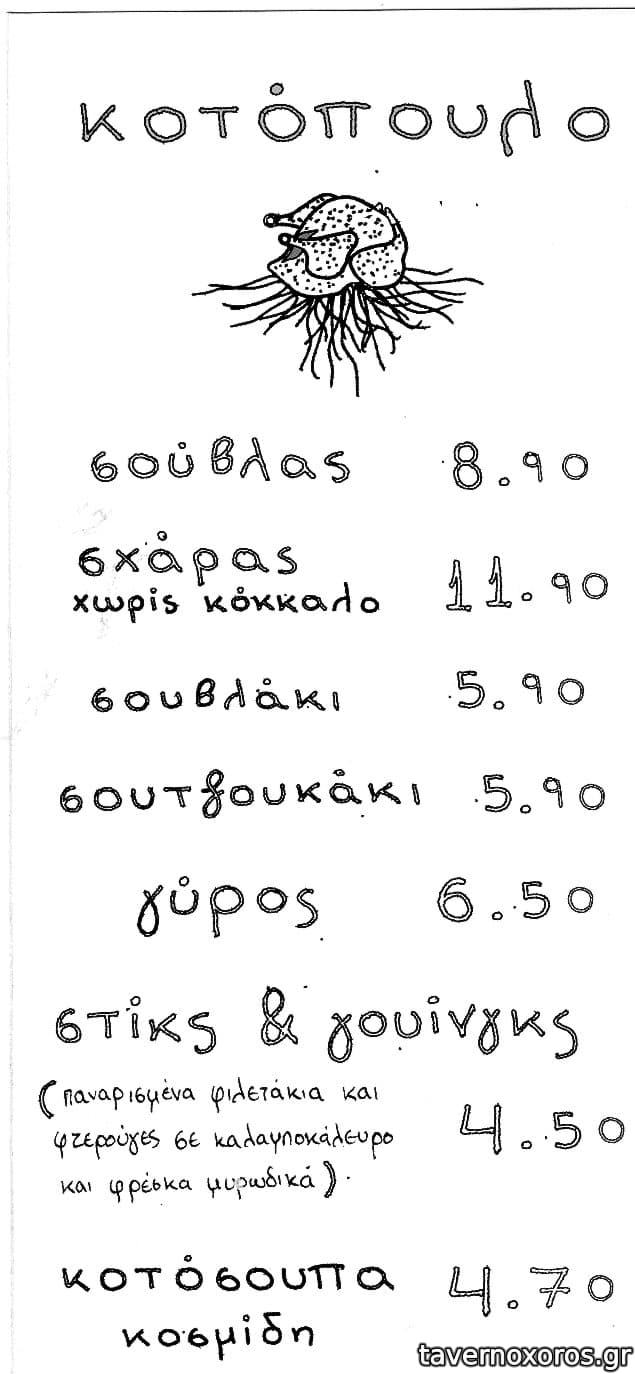 κοτόπουλο
σούβλας 8.90
σχάρας
χωρίς κόκκαλο 11.90
σουβλάκι 5.90
σουτζουκάκι 5.90
γύρος 6.50
στίκς & γουίνγκς
(παναρισμένα φιλετάκια και
φτερούγες σε καλαμποκάλευρο 4.50
και φρέσκα μυρωδικά).
κοτόσουπα 4.70
κοσμίδη
tavernoxoros.gr